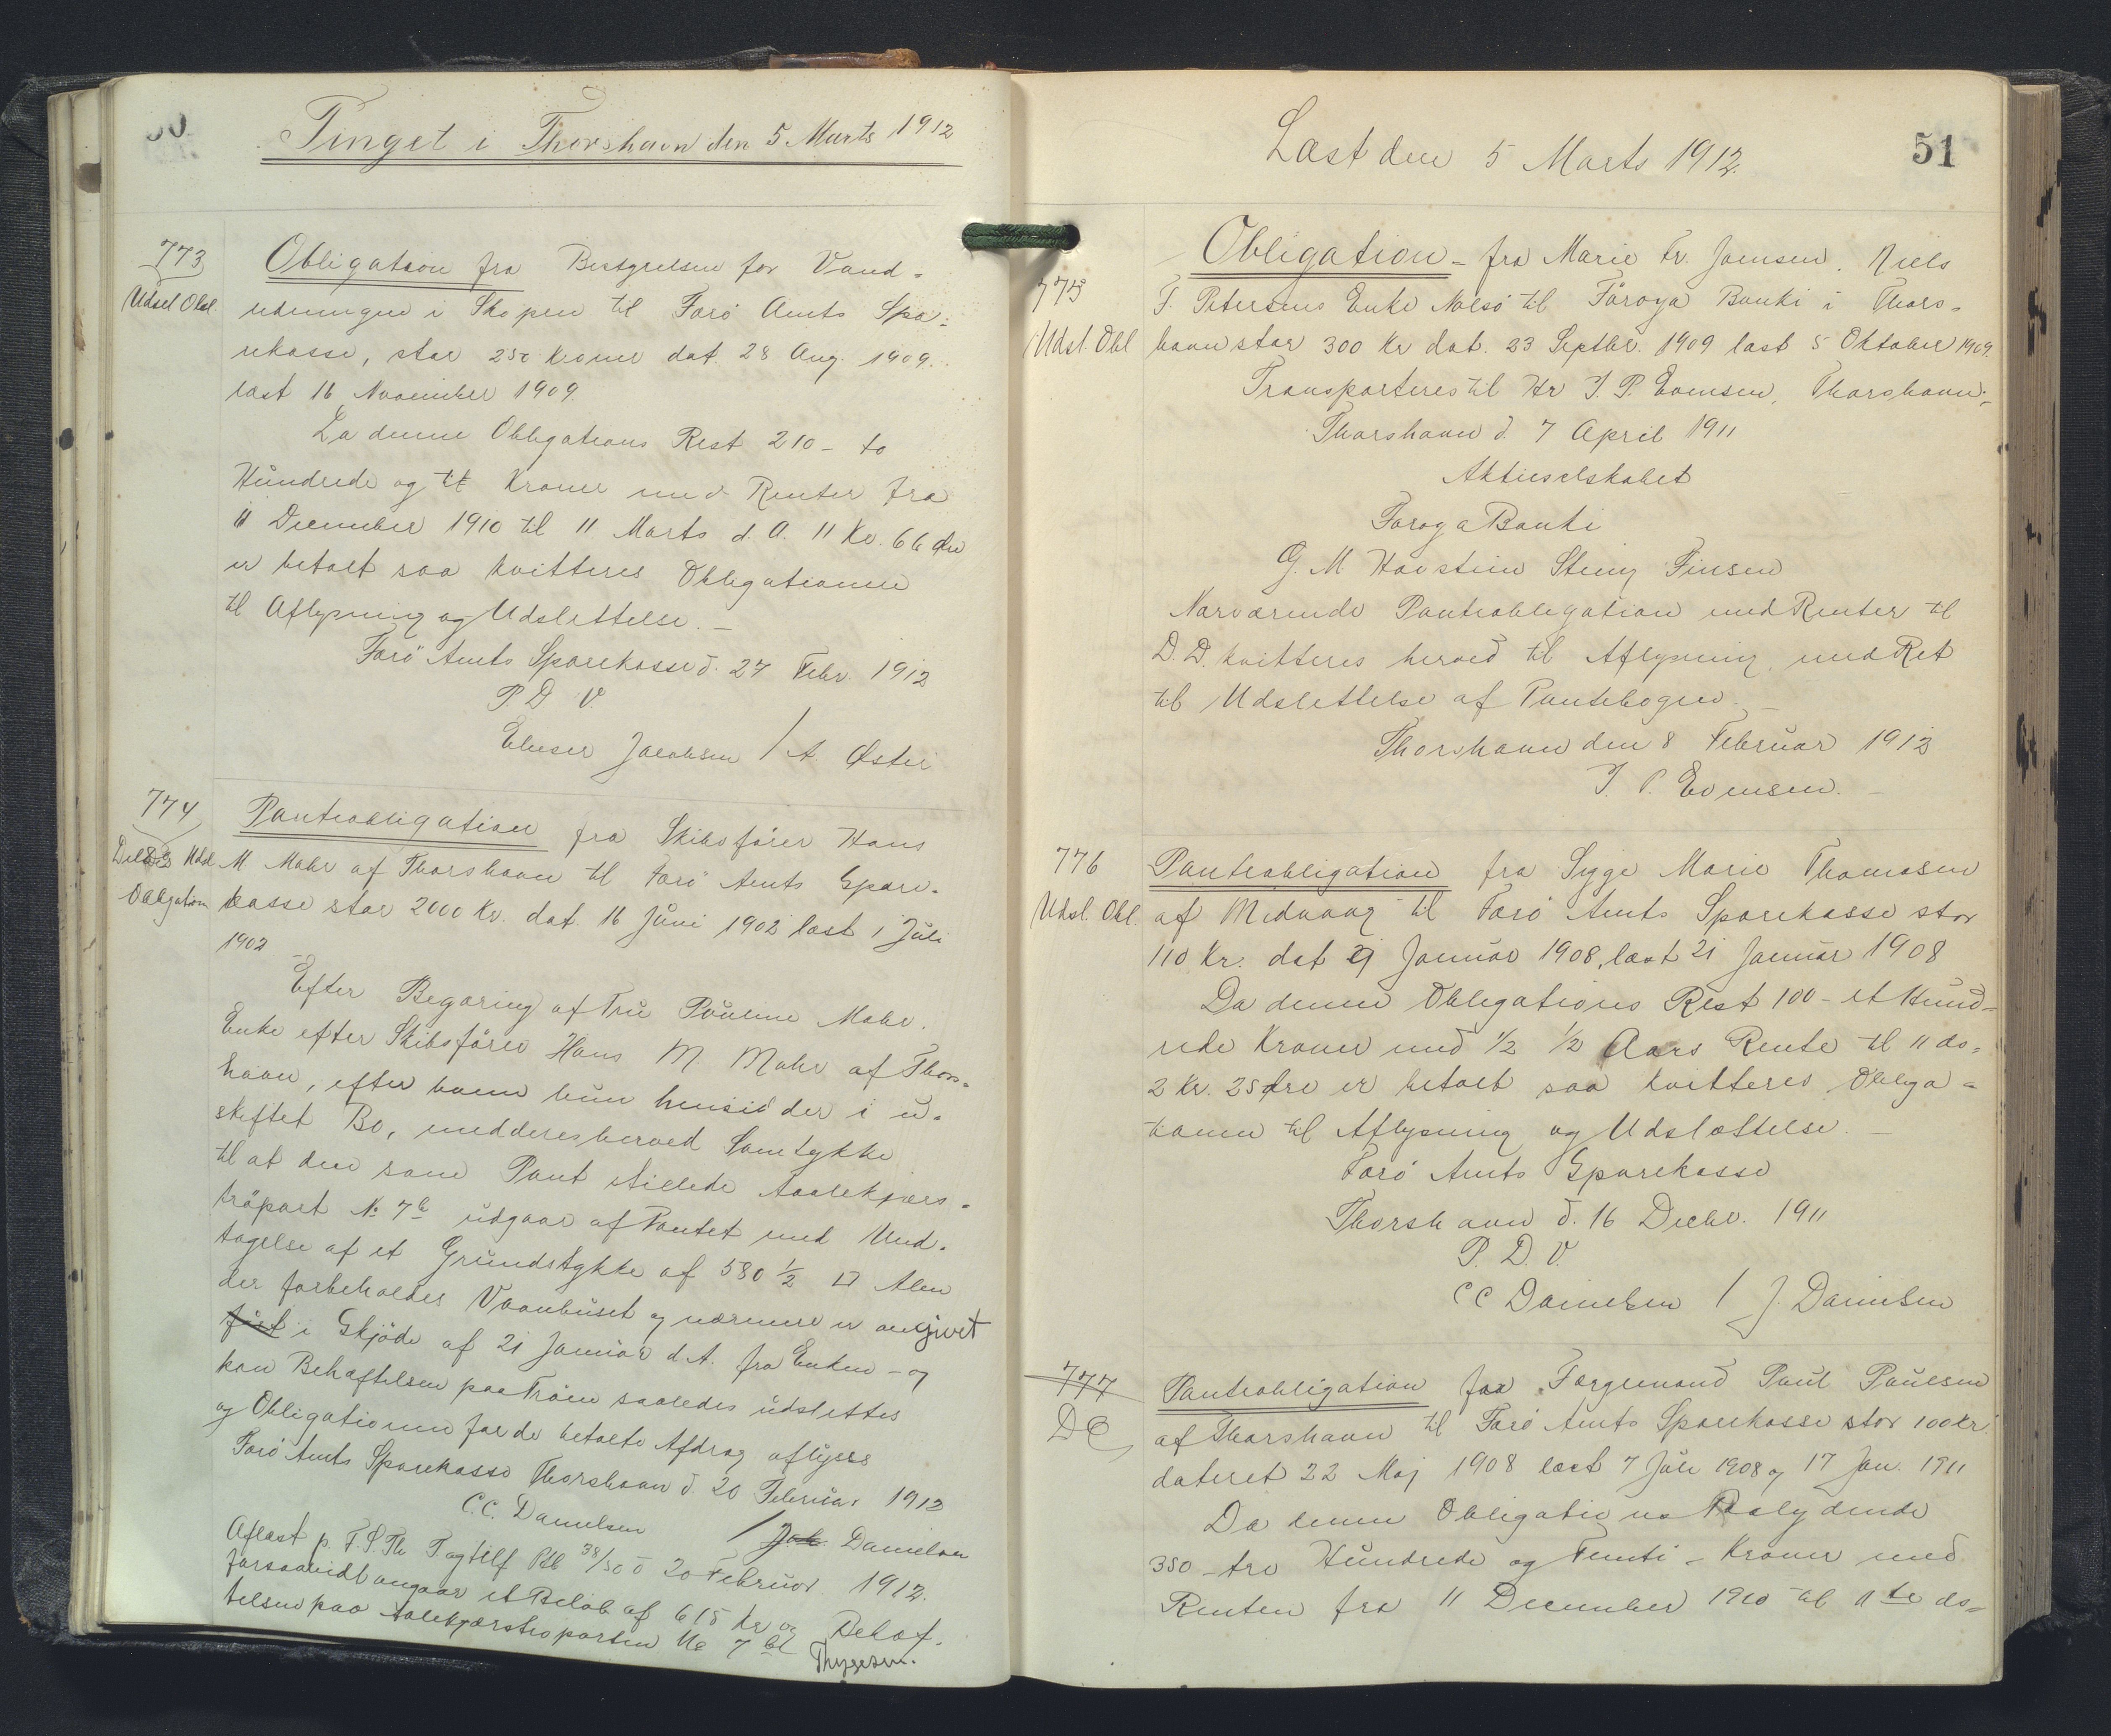 50
Tinget i Thorshavn den 5 Marts 1912
773
Udsl Obl.
Obligation fra Bestyrelsen for Vand-
ledningen i Skopen til Færö Amts Spa-
rekasse, stor 250 Kroner dat. 28 Aug. 1909.
læst 16 November 1909
Da denne Obligations Rest 210 - to
Hundrede og ti Kroner med Renter fra
11 December 1910 til 11 Marts d. A. 11 Kr. 66 Øre
er betalt saa kvitteres Obligationen
til Aflysning og Udslettelse. -
Færö Amts Sparekasse d. 27 Febr. 1912
P D V.
Elieser Jacobsen / A Øster
774
Delvis Udsl
Obligation
Panteobligation fra Skibsfører Hans
M Mohr af Thorshavn til Færö Amts Spare-
kasse stor 2000 Kr. dat. 16 Juni 1902 læst 1 Juli
1902
Efter Begæring af Fru Pouline Mohr.
Enke efter Skibsfører Hans M Mohr af Thors-
havn, efter hvem hun hensidder i u-
skiftet Bo, meddeles herved Samtykke
til at den som Pant stillede Aalekjærs-
tröpart No 7 b udgaar af Pantet med Und-
tagelse af et Grundstykke af 580 1/2 □ Alen
der forbeholdes Vaanhuset og nærmere er angivet
i Skjöde af 21 Januar d. A. fra Enken - og
kan Behæftelsen paa Tröen saaledes udslettes
og Obligationen for de betalte Afdrag aflyses
Færö Amts Sparekasse Thorshavn d. 20 Februar 1912
C.C. Danielsen / Joh Danielsen
Aflæst p. F. S. Th Tagtilf Ptb 38/50 d 20 Februar 1912.
forsaavidt angaar et Beløb af 615 Kr og Behæf-
telsen paa Aalekjærströparten No 7 bl
Thygesen.
Læst den 5 Marts 1912.
51
775
Udsl. Obl
Obligation - fra Marie Fr. Joensen. Niels
F. Petersens Enke Nolsö til Föroya Banki i Thors-
havn stor 300 Kr dat. 23 Septbr. 1909 læst 5 Oktober 1909.
Transporteres til Hr J. P. Evensen, Thorshavn.-
Thorshavn d. 7 April 1911
Aktieselskabet
Föroya Banki
G. M Hovstein Steing Finsen
Nærværende Panteobligation med Renter til
D. D. kvitteres herved til Aflysning med Ret
til Udslettelse af Pantebogen. -
Thorshavn den 8 Februar 1912
J. P. Evensen. -
776
Udsl. Obl.
Panteobligation fra Sygge Marie Thomasen
af Midvaag til Færö Amts Sparekasse stor
110 Kr. dat 9 Januar 1908, læst 21 Januar 1908
Da denne Obligations Rest 100 - et Hund-
rede Kroner med 1/2 1/2 Aars Rente til 11 ds-
2 Kr. 25 Øre er betalt saa kvitteres Obliga-
tionen til Aflysning og Udslættelse. -
Færö Amts Sparekasse
Thorshavn d. 16 Decbr. 1911
P. D. V.
C C Danielsen / J. Danielsen
777
Panteobligation fra Færgemand Paul Paulsen
af Thorshavn til Færö Amts Sparekasse stor 100 Kr.
dateret 22 Maj 1908 læst 7 Juli 1908 og 17 Jan. 1911
Da denne Obligations Paalydende
350 - tre Hundrede og Femti - Kroner med
Renten fra 11 December 1910 til 11te ds-